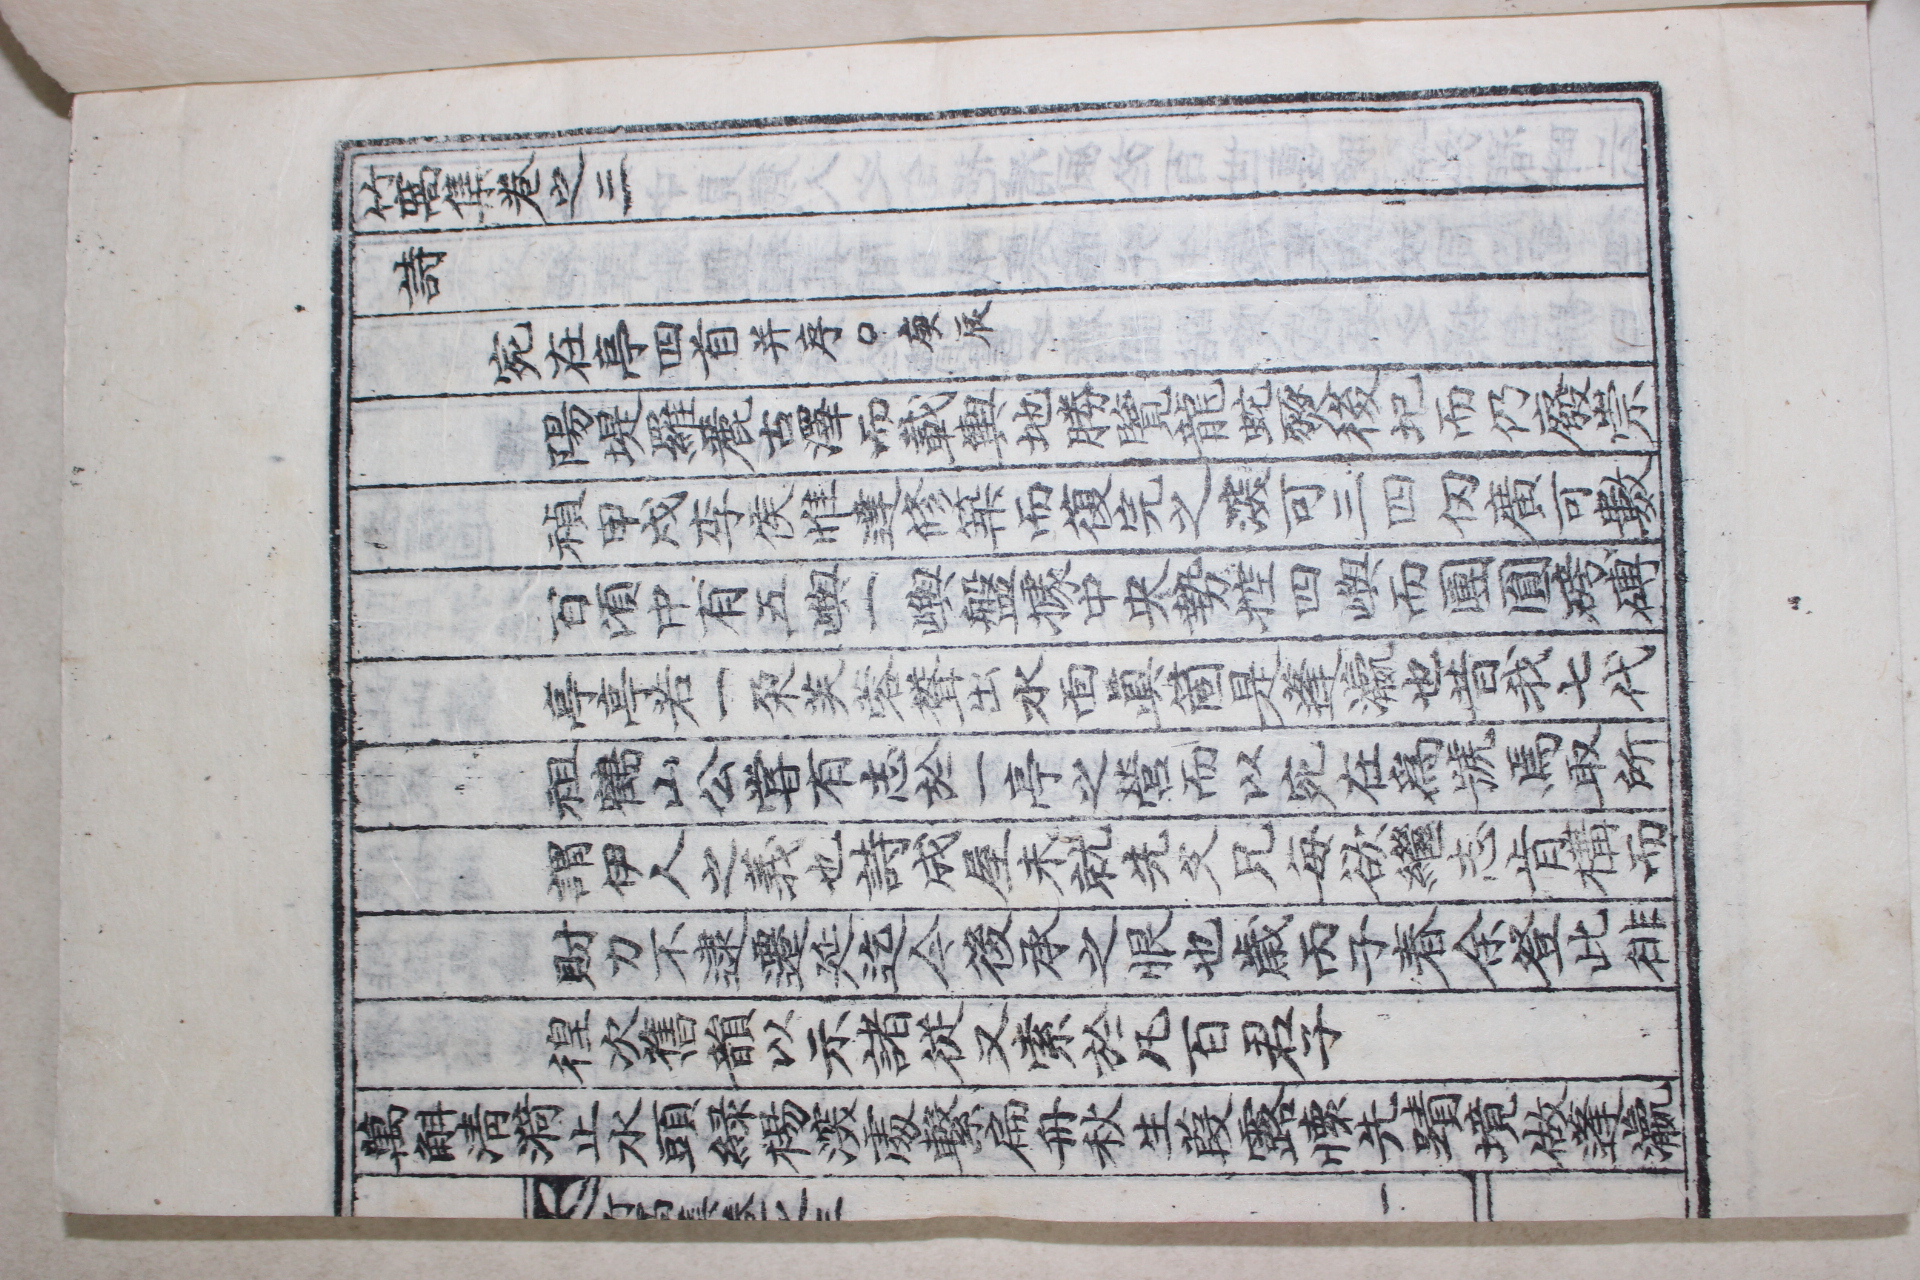 竹窩集卷之三
詩
宛在亭四首并序○庚辰
陽堤羅麗古澤而載輿地勝覽龍蛇發後圮而仍廢崇
禎甲戌李侯惟達修築而復完之深可三四仞廣可數
百頃中有五嶼一嶼盤據中央勢壯四嶼而團圓磅礴
亭亭若一朶芙蓉聳出水面眞箇是蓬瀛也昔我七代
祖鶴山公嘗有志於一亭之營而以宛在爲號焉取所
謂伊人之義也詩成屋未就先父兄每欲繼志肯構而
財力不逮遷延迄今後承之恨也歲丙子春余登此徘
徨次舊韻以示諸從又索於凡百君子
萬斛清漪止水頭綠楊深處繫扁舟秋生葭露懷先躅境倣蓬瀛
竹窩集卷之三 一